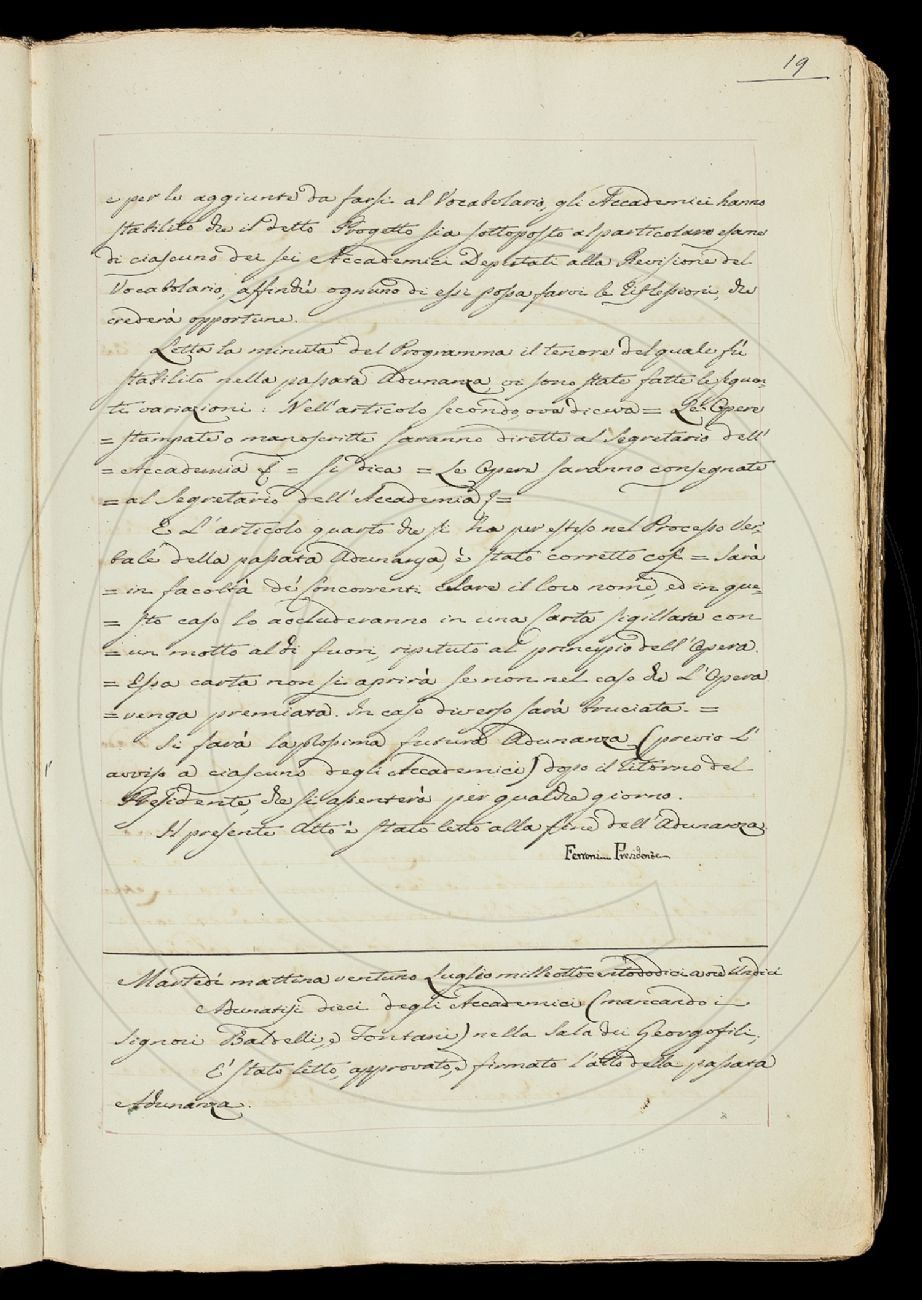 19
e per le aggiunte da farsi al Vocabolario, gli Accademici hanno
stabilito che il detto Progetto sia sottoposto al particolare esame
di ciascuno dei sei Accademici Deputati alla Revisione del
Vocabolario, affinchè ognuno di essi possa farvi le riflessioni, che
crederà opportune.
Letta la minuta del Programma il tenore del quale fù
stabilito nella passata Adunanza, vi sono state fatte le seguen-
ti variazioni: Nell'articolo secondo, ove diceva = Le Opere
= stampate o manoscritte saranno dirette al Segretario dell'
= Accademia & = si dica = Le Opere saranno consegnate
= al Segretario dell'Accademia & =
E L'articolo quarto che si ha per esteso nel Processo Ver-
bale della passata Adunanza, è stato corretto così = Sarà
= in facoltà de' Concorrenti celare il loro nome, ed in que-
= sto caso lo accluderanno in una Carta sigillata con
= un motto al di fuori, ripetuto al principio dell'Opera.
= Essa carta non si aprirà se non nel caso che L'Opera
= venga premiata. In caso diverso sarà bruciata. =
Si farà la prossima futura Adunanza (previo L'
avviso a ciascuno degli Accademici) dopo il ritorno del
Presidente, che si assenterà per qualche giorno.
Il presente Atto è stato letto alla fine dell'Adunanza.
Ferroni Presidente
Martedì mattina ventuno Luglio milleottocentododici a ore Undici
Adunatisi dieci degli Accademici (mancando i
Signori Baldelli, e Fontani) nella Sala dei Georgofili,
E' stato letto, approvato, e firmato l'atto della passata
Adunanza.